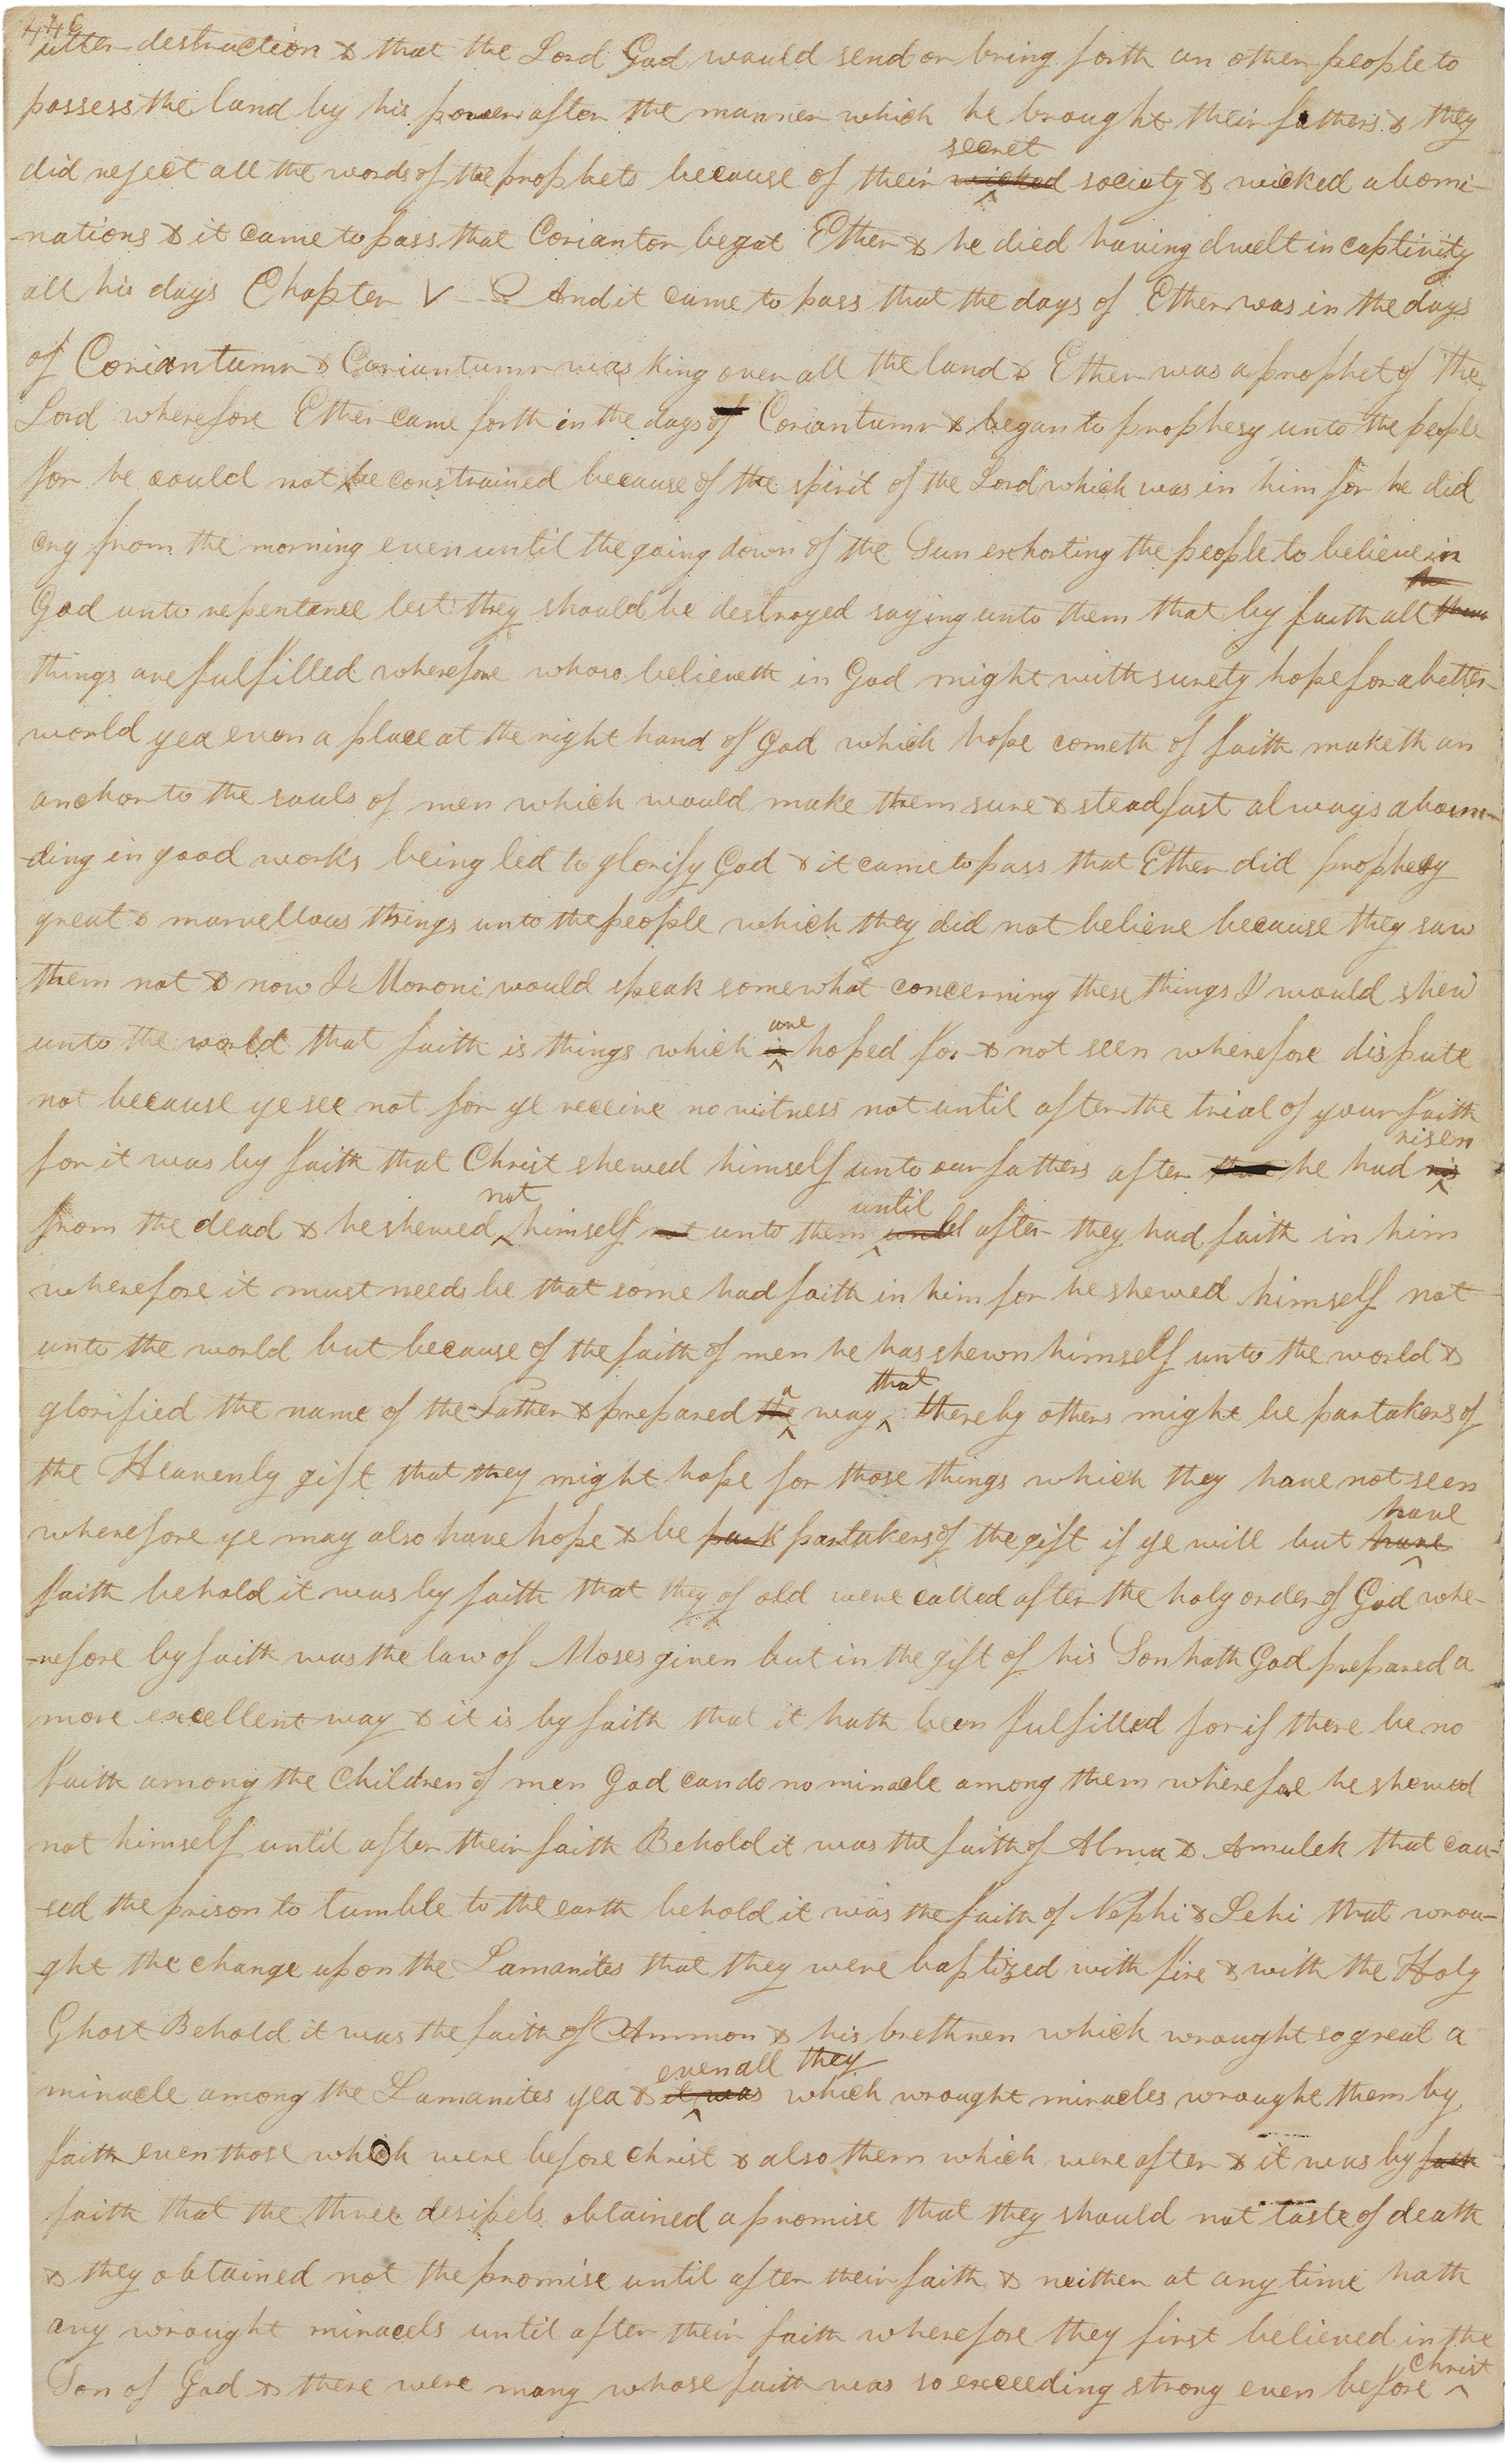 446
utter destruction & that the Lord God would send or bring forth an other people to
possess the land by his power after the manner which he brought their fathers & they
did reject all the words of the prophets because of their wicked secret society & wicked abomi-
-nations & it came to pass that Coriantor begat Ether & he died having dwelt in captivity
all his days Chapter V And it came to pass that the days of Ether was in the days
of Coriantumr & Coriantumr was king over all the land & Ether was a prophet of the
Lord wherefore Ether came forth in the days of Coriantumr & began to prophesy unto the people
for he could not be constrained because of the spirit of the Lord which was in him for he did
cry from the morning even until the going down of the Sun exhorting the people to believe in
God unto repentance lest they should be destroyed saying unto them that by faith all
things are fulfilled wherefore whoso believeth in God might with surety hope for a better
world yea even a place at the right hand of God which hope cometh of faith maketh an
anchor to the souls of men which would make them sure & steadfast always aboun-
-ding in good works being led to glorify God & it came to pass that Ether did prophecy
great & marvellous things unto the people which they did not believe because they saw
them not & now I Moroni would speak somewhat concerning these things I would shew
unto the world that faith is things which is are hoped for & not seen wherefore dispute
not because ye see not for ye receive no witness not until after the trial of your faith
for it was by faith that Christ shewed himself unto our fathers after he had ris risen
from the dead & he shewed not himself not unto them until after they had faith in him
wherefore it must needs be that some had faith in him for he shewed himself not
unto the world but because of the faith of men he has shewn himself unto the world &
glorified the name of the Father & prepared the a way that thereby others might be partakers of
the Heavenly gift that they might hope for those things which they have not seen
wherefore ye may also have hope & be partakers of the gift if ye will but have have
faith behold it was by faith that they of old were called after the holy order of God whe-
-refore by faith was the law of Moses given but in the gift of his Son hath God prepared a
more excellent way & it is by faith that it hath been fulfilled for if there be no
faith among the Children of men God can do no miracle among them wherefore he shewed
not himself until after their faith Behold it was the faith of Alma & Amulek that cau-
-sed the prison to tumble to the earth behold it was the faith of Nephi & Lehi that wrou-
-ght the change upon the Lamanites that they were baptized with fire & with the Holy
Ghost Behold it was the faith of Ammon & his brethren which wrought so great a
miracle among the Lamanites yea & it was even all they which wrought miracles wrought them by
faith even those which were before christ & also them which were after & it was by faith
faith that the three desipels obtained a promise that they should not taste of death
& they obtained not the promise until after their faith & neither at any time hath
any wrought miracels until after their faith wherefore they first believed in the
Son of God & there were many whose faith was so exceeding strong even before Christ